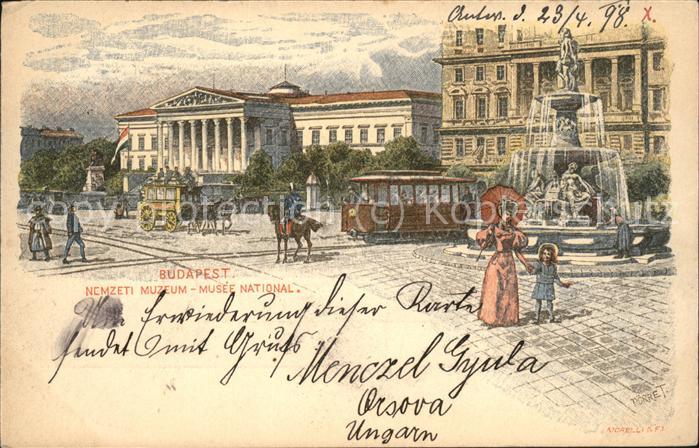 Antw. d. 23/4. 98. X.
BUDAPEST.
NEMZETI MUZEUM - MUSÉE NATIONAL.
Um Erwiederung dieser Karte
sendet mit Gruß
Menczel Gyula
Orsova
Ungarn
DÖRRE T.
MORELLI G. F.